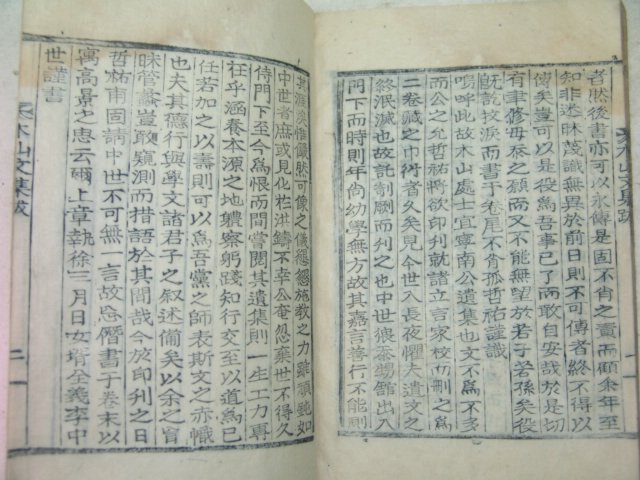 者然後書亦可以永傳是固不肖之責而顧余年至
知非迷昧蔑識無異於前日則不可傳者終不得以
傳矣豈可以是役爲吾事已了而敢自安哉於是切
有聿修毋忝之願而又不能無望於若子若孫矣役
旣訖抆淚而書于卷尾不肖孤哲祐謹識
嗚呼此故木山處士宜寧南公遺集也文不下
而公之允哲祐將欲印刋就諸立言家校而刪之爲
二卷藏之巾衍者久矣見今世入長夜懼夫遺文之
終泯滅也托以剞劂而刋之也中世猥忝甥館出入
門下而時則年尚幼學無方故其嘉言善行不能則
其涯涘惟儼然可像之儀懇懇施敎之力雖頑鈍如
中世者庶或見化於洪鑄不幸公奄忽棄世不得久
侍門下至今爲恨而間嘗閱其遺集則一生工力專
在乎涵養本源之地軆察躬踐知行交至以道爲己
任若加之以需則可以爲吾黨之師表斯文之赤幟
也夫其德行與學文諸君子之叙述備矣以余之盲
昧管蠡豈敢窺測而措語於其間哉今於印刋之日
哲祐甫固請中世不可無一言故忘僭書于卷末以
寓高景之忠云爾上章執徐三月日女壻全義李中
世謹書
木山文集跋
木山文集跋
二